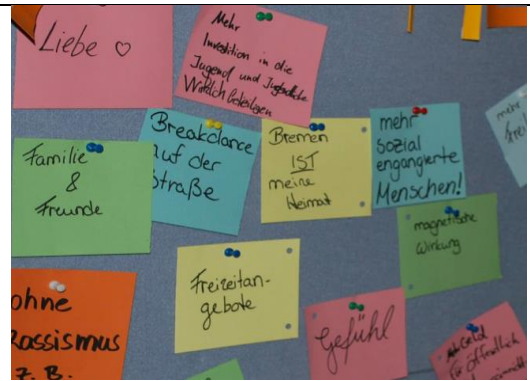 Liebe ♡
Mehr
Investition in die
Jugend und Jugendliche
Wirklich beteiligen
Familie
&
Freunde
Breakdance
auf der
Straße
Bremen
IST
meine
Heimat
mehr
sozial
engangierte
Menschen!
mehr
magnetische
Wirkung
Freizeitan-
gebote
ohne
Rassismus
z. B.
Gefühl
Geld
für öffentlich